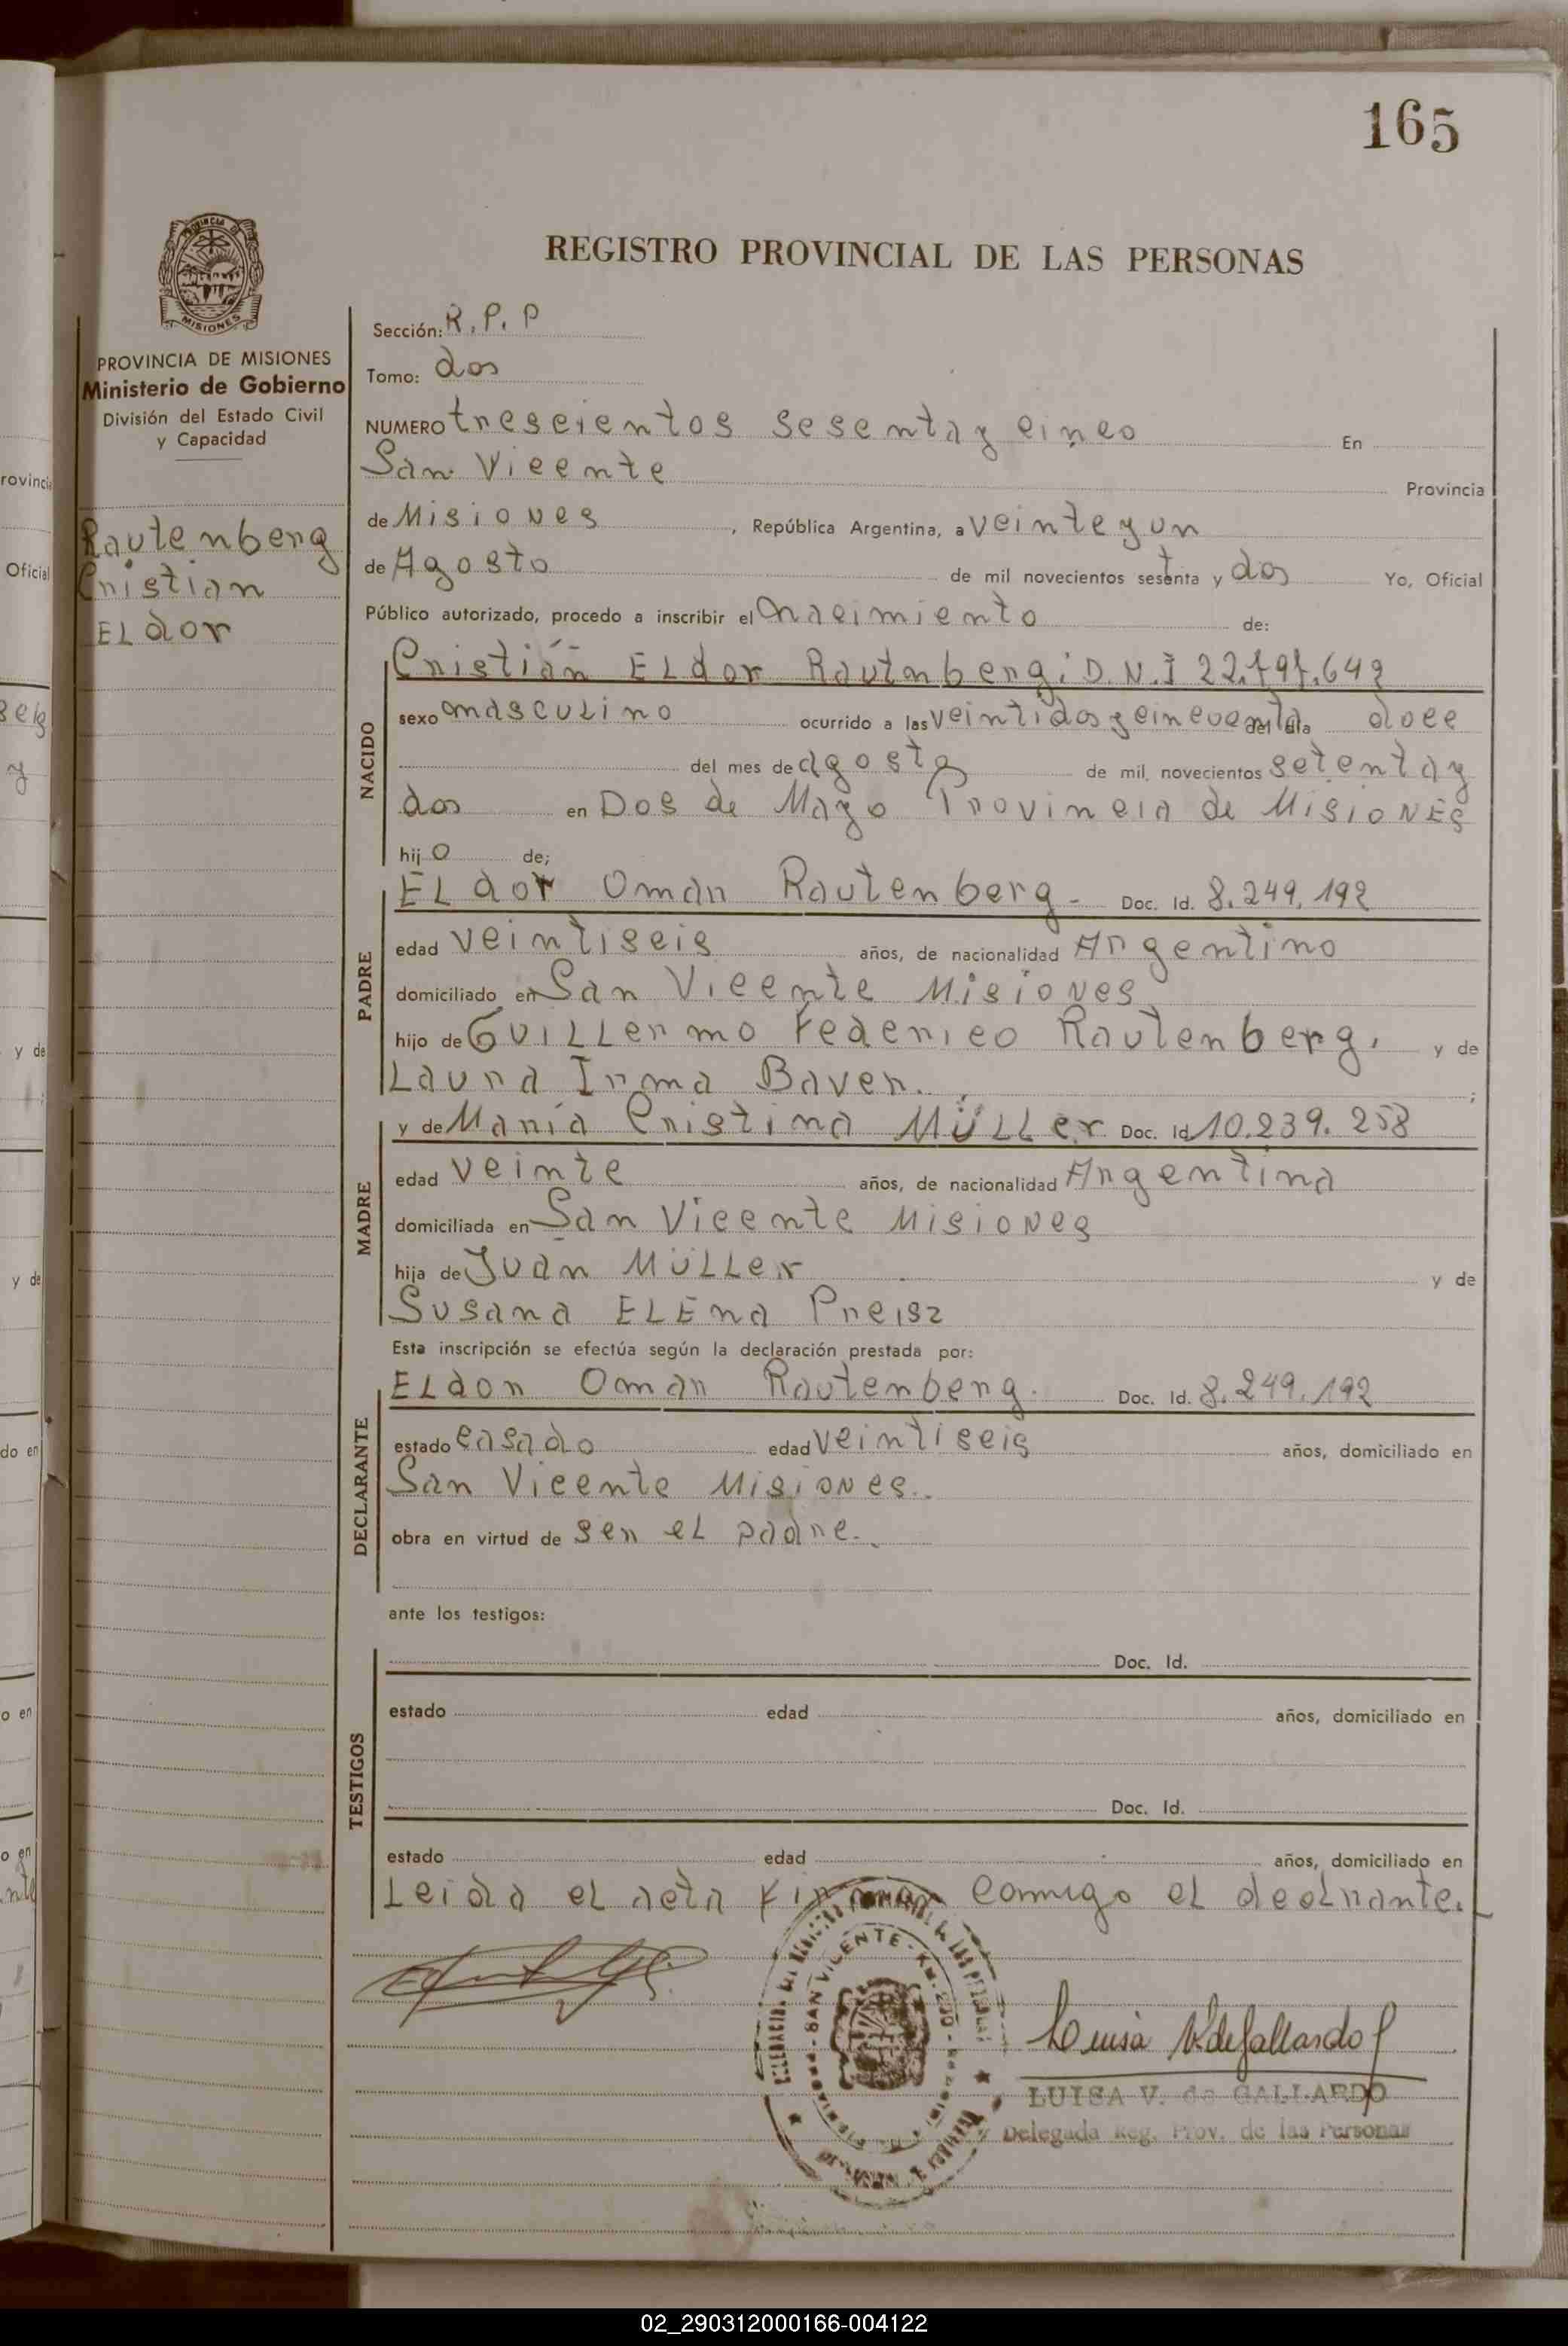 165
REGISTRO PROVINCIAL DE LAS PERSONAS
PROVINCIA DE MISIONES
Ministerio de Gobierno
División del Estado Civil
y Capacidad
Rautenberg
Cristian
ELdor
Sección: R.P.P
Tomo: dos
NUMERO trescientos sesenta y cinco En
San Vicente Provincia
de Misiones, República Argentina, a veinte y un
de Agosto de mil novecientos setenta y dos Yo, Oficial
Público autorizado, procedo a inscribir el nacimiento de:
Cristián ELdor Rautnberg; D.N.I
NACIDO
sexo masculino ocurrido a las veintidos y cincuenta del día doce
del mes de agosto de mil novecientos setenta y
dos en Dos de Mayo Provincia de Misiones
hijo de;
PADRE
ELdor Omar Rautenberg - Doc. Id. 8.249.192
edad veintiseis años, de nacionalidad Argentino
domiciliado en San Vicente Misiones
hijo de Guillermo Federico Rautenberg. y de
Laura Irma Baver. ;
MADRE
y de María Cristina Müller Doc. Id 10.239.258
edad veinte años, de nacionalidad Argentina
domiciliada en San Vicente Misiones
hija de Juan Müller y de
Susana ELEna Preisz
Esta inscripción se efectúa según la declaración prestada por:
DECLARANTE
ELdor Omar Rautenberg. Doc. Id. 8.249.192
estado casado edad veintiseis años, domiciliado en
San Vicente Misiones.
obra en virtud de ser el padre.
ante los testigos:
TESTIGOS
Doc. Id.
estado edad años, domiciliado en
Doc. Id.
estado edad años, domiciliado en
Leida el acta conmigo el
SAN VICENTE
Luisa V. de Gallardo
LUISA V. de GALLARDO
Delegada Reg. Prov. de las Personas
rovincia
Oficial
y de
y de
do en
o en
o en
02_290312000166-004122